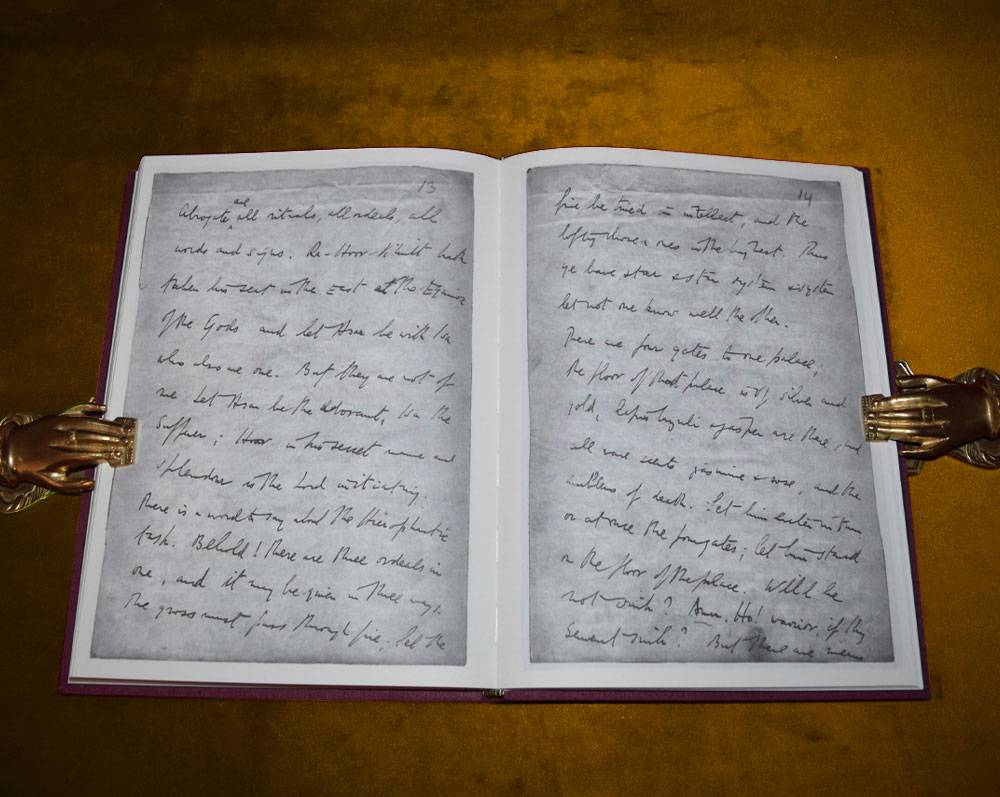 13
Abrogate are all rituals, all ordeals, all
words and signs. Ra-Hoor-Khuit hath
taken his seat in the East at the Equinox
of the Gods and let Asar be with Isa
who also are one. But they are not of
me. Let Asar be the adorant, Isa the
sufferer; Hoor in his secret name and
splendour is the Lord initiating.
There is a word to say about the Hierophantic
task. Behold! there are three ordeals in
one, and it may be given in three ways.
The gross must pass through fire; let the
14
fine be tried in intellect, and the
lofty chosen ones in the highest. Thus
ye have star & star system & system
let not one know well the other.
There are four gates to one palace;
the floor of that palace is of silver and
gold, lapis lazuli & jasper are there, and
all rare scents jasmine & rose, and the
emblems of death. Let him enter in turn
or at once the four gates; let him stand
on the floor of the palace. Will he
not sink? Amn. Ho! warrior, if thy
servant sink? But there are means